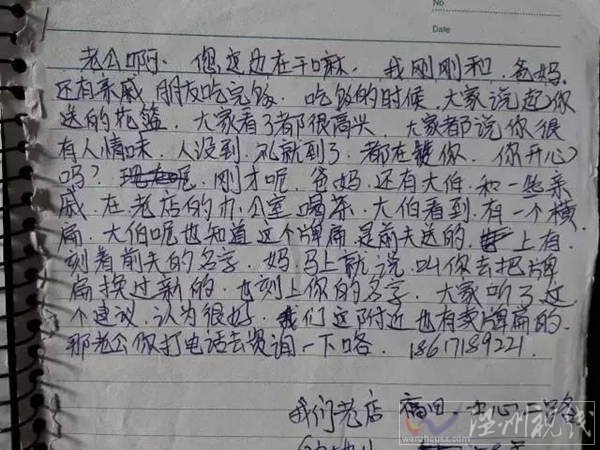 No
Date
老公啊、您这边在干嘛、我刚刚和、爸妈、
还有亲戚朋友吃完饭、吃饭的时候、大家说起你
送的花篮、大家看了都很高兴、大家都说你很
有人情味、人没到、礼就到了、都在你、你开心
吗？刚才呢、爸妈、还有大伯、和一些亲
戚、在老店的办公室喝茶、大伯看到、有一个横
扁、大伯呢也知道这个牌扁、是前夫送的、上有、
刻着前夫的名字、妈、马上就说、叫你去把牌
扁换过新的、也刻上你的名字、大家听了这
个建议、认为很好、我们这附近也有卖牌扁的、
那老公你打电话去资询一下咯、18617189221、
我们老店 福田、中心 路
温州视线
wenzhousx.com